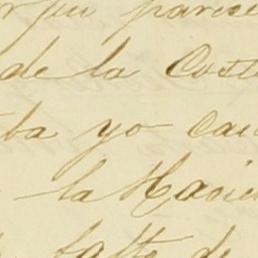 parece
de la Costa
ba yo
la Hacien
falta de